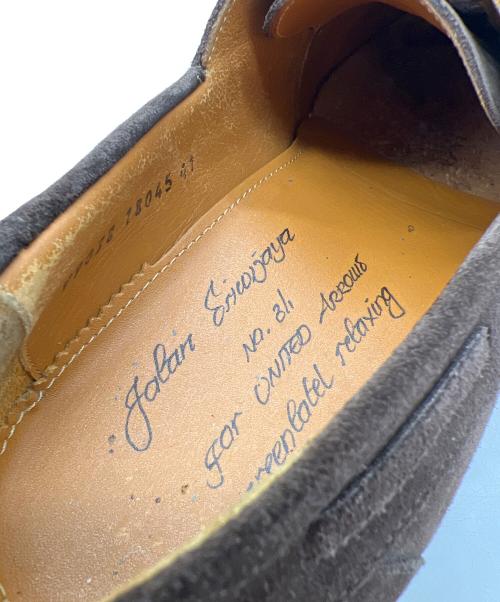 18045 41
Jalan Sriwijaya
No. 311
For UNITED ARROWS
green label relaxing